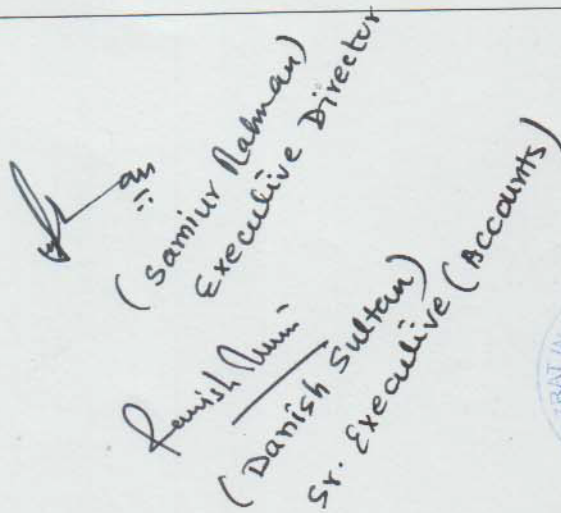 (Samiur Rahman)
Executive Director
(Danish Sultan)
Sr. Executive (Accounts)